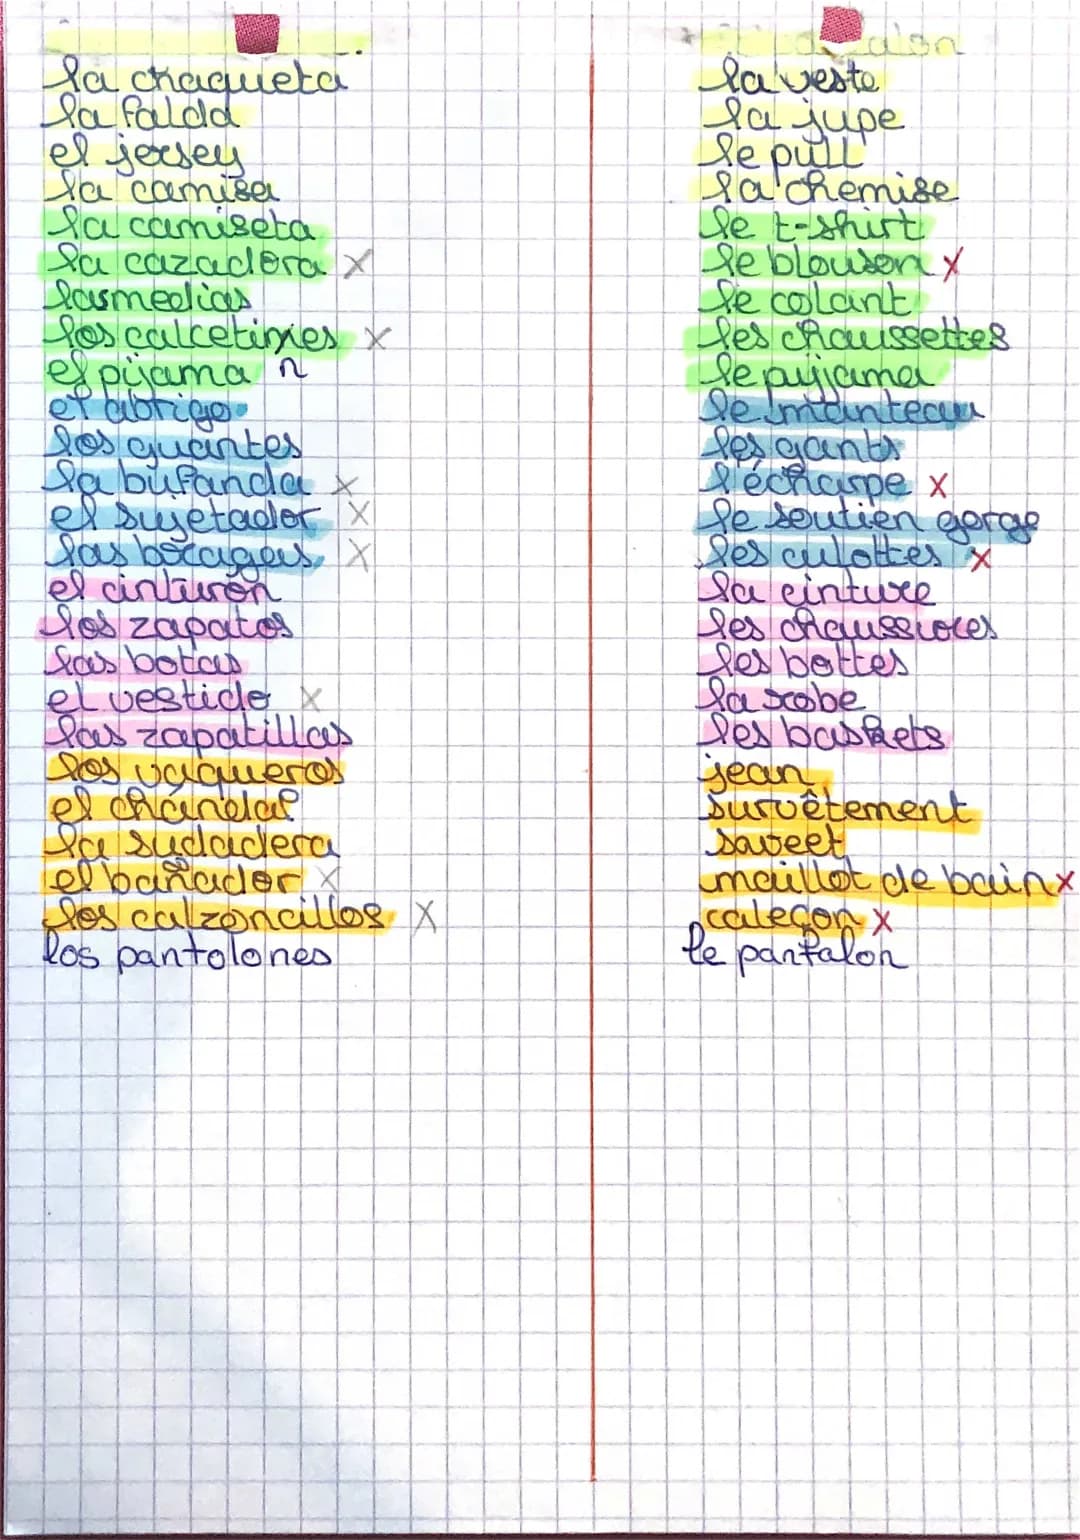 la chaqueta
la falda
el jersey
la camisa
la camiseta
la cazadora x
las medias
los calcetines x
el pijama n
el abrigo
los guantes
la bufanda x
el sujetador x
las bragas x
el cinturón
los zapatos
las botas
el vestido x
las zapatillas
los vaqueros
el chándal
la sudadera
el bañador x
los calzoncillos x
los pantolones
la veste
la jupe
le pull
la chemise
le t-shirt
le blouson x
le colant
les chaussettes
le pyjama
le manteau
les gants
l'écharpe x
le soutien gorge
les culottes x
la cinture
les chaussures
les bottes
la robe
les baskets
jean
survêtement
sweet
maillot de bain x
caleçon x
le pantalon